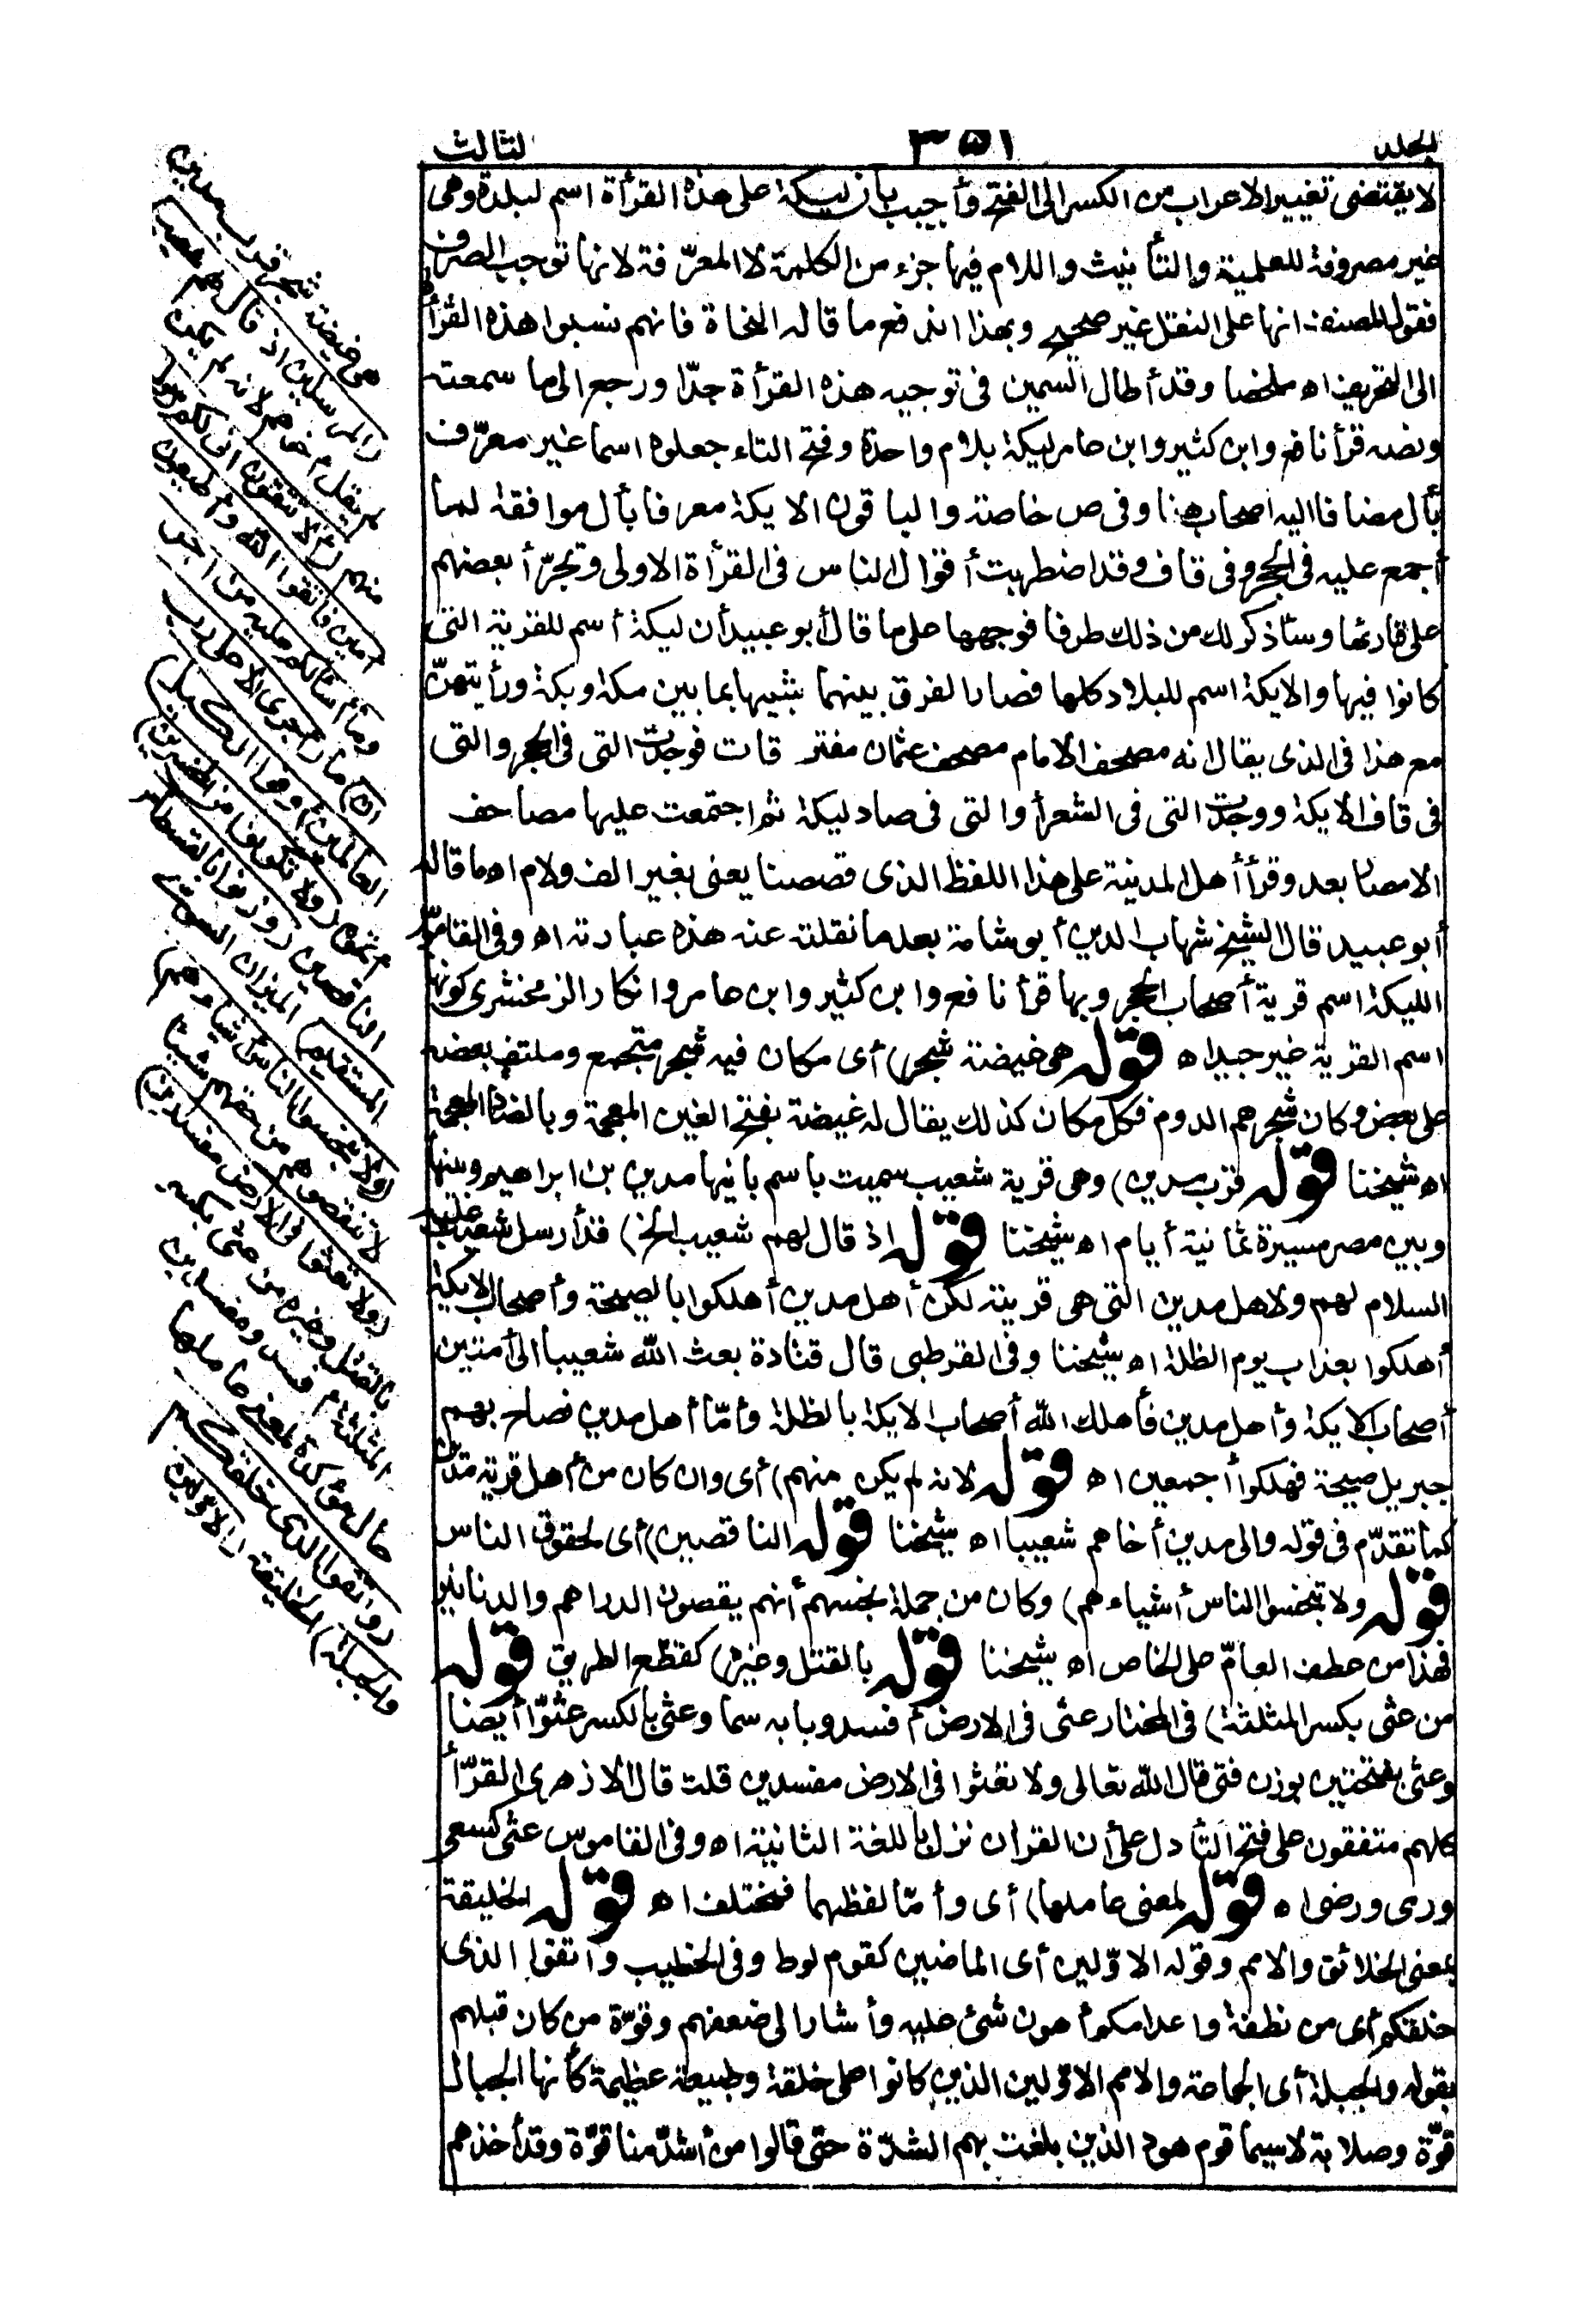 المجلد ٣٥١ الثالث
لا يقتضى تغيير الاعراب من الكسر الى الفتح وأجيب بأن ليكة على هذه القرأة اسم لبلدة وهى
غير مصروفة للعلمية والتأنيث واللام فيها جزء من الكلمة لا المعرّفة لانها توجب الصرف
فقول المصنف انها على النقل غير صحيح وبهذا اندفع ما قاله النحاة فانهم نسبوا هذه القرأة
الى التحريف اه ملخصا وقد أطال السمين فى توجيه هذه القرأة جدّا ورجع الى ما سمعته
ونصه قرأ نافع وابن كثير وابن عامر ليكة بلام واحدة وفتح التاء جعلوه اسما غير معرّف
بأل مضافا اليه اصحاب هنا وفى ص خاصة والباقون الايكة معرفا بأل موافقة لما
أجمع عليه فى الحجر وفى قاف وقد اضطربت أقوال الناس فى القرأة الاولى وتجرّأ بعضهم
على قارئها وسأذكر لك من ذلك طرفا فوجهها على ما قال أبو عبيد أن ليكة أسم للقرية التى
كانوا فيها والايكة اسم للبلاد كلها فصار الفرق بينهما شبيها بما بين مكة وبكة ورأيتهنّ
مع هذا فى الذى يقال انه مصحف الامام مصحف عثمان مفترقات فوجدت التى فى الحجر والتى
فى قاف الايكة ووجدت التى فى الشعرأ والتى فى صاد ليكة ثم اجتمعت عليها مصاحف
الامصار بعد وقرأ أهل المدينة على هذا اللفظ الذى قصصنا يعنى بغير الف ولام اه ما قاله
أبو عبيد قال الشيخ شهاب الدين أبو شامة بعد ما نقلته عنه هذه عبارته اه وفى القاموس
الليكة اسم قرية أصحاب الحجر وبها قرأ نافع وابن كثير وابن عامر وانكار الزمخشرى كونها
اسم القرية غير جيد اه قوله هى غيضة شجر) أى مكان فيه شجر متجمع وملتف بعضه
على بعض وكان شجرهم الدوم فكل مكان كذلك يقال له غيضة بفتح الغين المعجمة وبالضاد المعجمة
اه شيخنا قوله قرب مدين) وهى قرية شعيب سميت باسم بانيها مدين بن ابراهيم وبينها
وبين مصر مسيرة ثمانية أيام اه شيخنا قوله اذ قال لهم شعيب الخ) فقد أرسل شعيب عليه
السلام لهم ولاهل مدين التى هى قريته لكن أهل مدين أهلكوا بالصيحة وأصحاب الايكة
أهلكوا بعذاب يوم الظلة اه شيخنا وفى القرطبى قال قتادة بعث الله شعيبا الى أمتين
أصحاب الايكة وأهل مدين فأهلك الله أصحاب الايكة بالظلة وأمّا أهل مدين فصاح بهم
جبريل صيحة فهلكوا أجمعين اه قوله لانه لم يكن منهم) أى وان كان من أهل قرية مدين
كما تقدّم فى قوله والى مدين أخاهم شعيبا اه شيخنا قوله الناقصين) أى لحقوق الناس
قوله ولا تبخسوا الناس أشياءهم) وكان من جملة بخسهم أنهم يقصون الدراهم والدنانير
فهذا من عطف العامّ على الخاص اه شيخنا قوله بالقتل وغيره) كقطع الطريق قوله
من عثى بكسر المثلثة) فى المختار عثى فى الارض أفسد وبابه سما وعثى بالكسر عثوّا أيضا
وعثى بفتحتين بوزن فتى قال الله تعالى ولا تعثوا فى الارض مفسدين قلت قال الازهرى القرّأ
كلهم متفقون على فتح الثأ دل على أن القران نزل باللغة الثانية اه وفى القاموس عثى كسعى
ورمى ورضى اه قوله لمعنى عاملها) أى وأمّا لفظهما فمختلف اه قوله الخليقة
بمعنى الخلائق والامم وقوله الاوّلين أى الماضين كقوم لوط وفى الخطيب واتقوا الذى
خلقكم أى من نطفة واعدامكم أهون شئ عليه وأشار الى ضعفهم وقوّة من كان قبلهم
بقوله والجبلة أى الجماعة والامم الاوّلين الذين كانوا على خلقة وطبيعة عظيمة كأنها الجبال
قوّة وصلابة لاسيما قوم هود الذين بلغت بهم الشدّة حتى قالوا من أشدّ منا قوّة وقد أخذهم
هى غيضة شجر قرب مدين
(المرسلين اذ قال لهم شعيب)
لم يقل أخاهم لانه لم يكن
منهم (ألا تتقون انى لكم رسول
أمين فاتقوا الله وأطيعون
وما أسألكم عليه من أجر
ان) ما (أجرى الا على رب
العالمين أوفوا الكيل)
أتموه (ولا تكونوا من المخسرين)
الناقصين (وزنوا بالقسطاس
المستقيم) الميزان السوى
(ولا تبخسوا الناس أشياءهم)
لا تنقصوهم من حقهم شيئا
(ولا تعثوا فى الارض مفسدين)
بالقتل وغيره من عثى بكسر
المثلثة أفسد ومفسدين
حال مؤكدة لمعنى عاملها
(واتقوا الذى خلقكم
والجبلة) الخليقة (الاولين